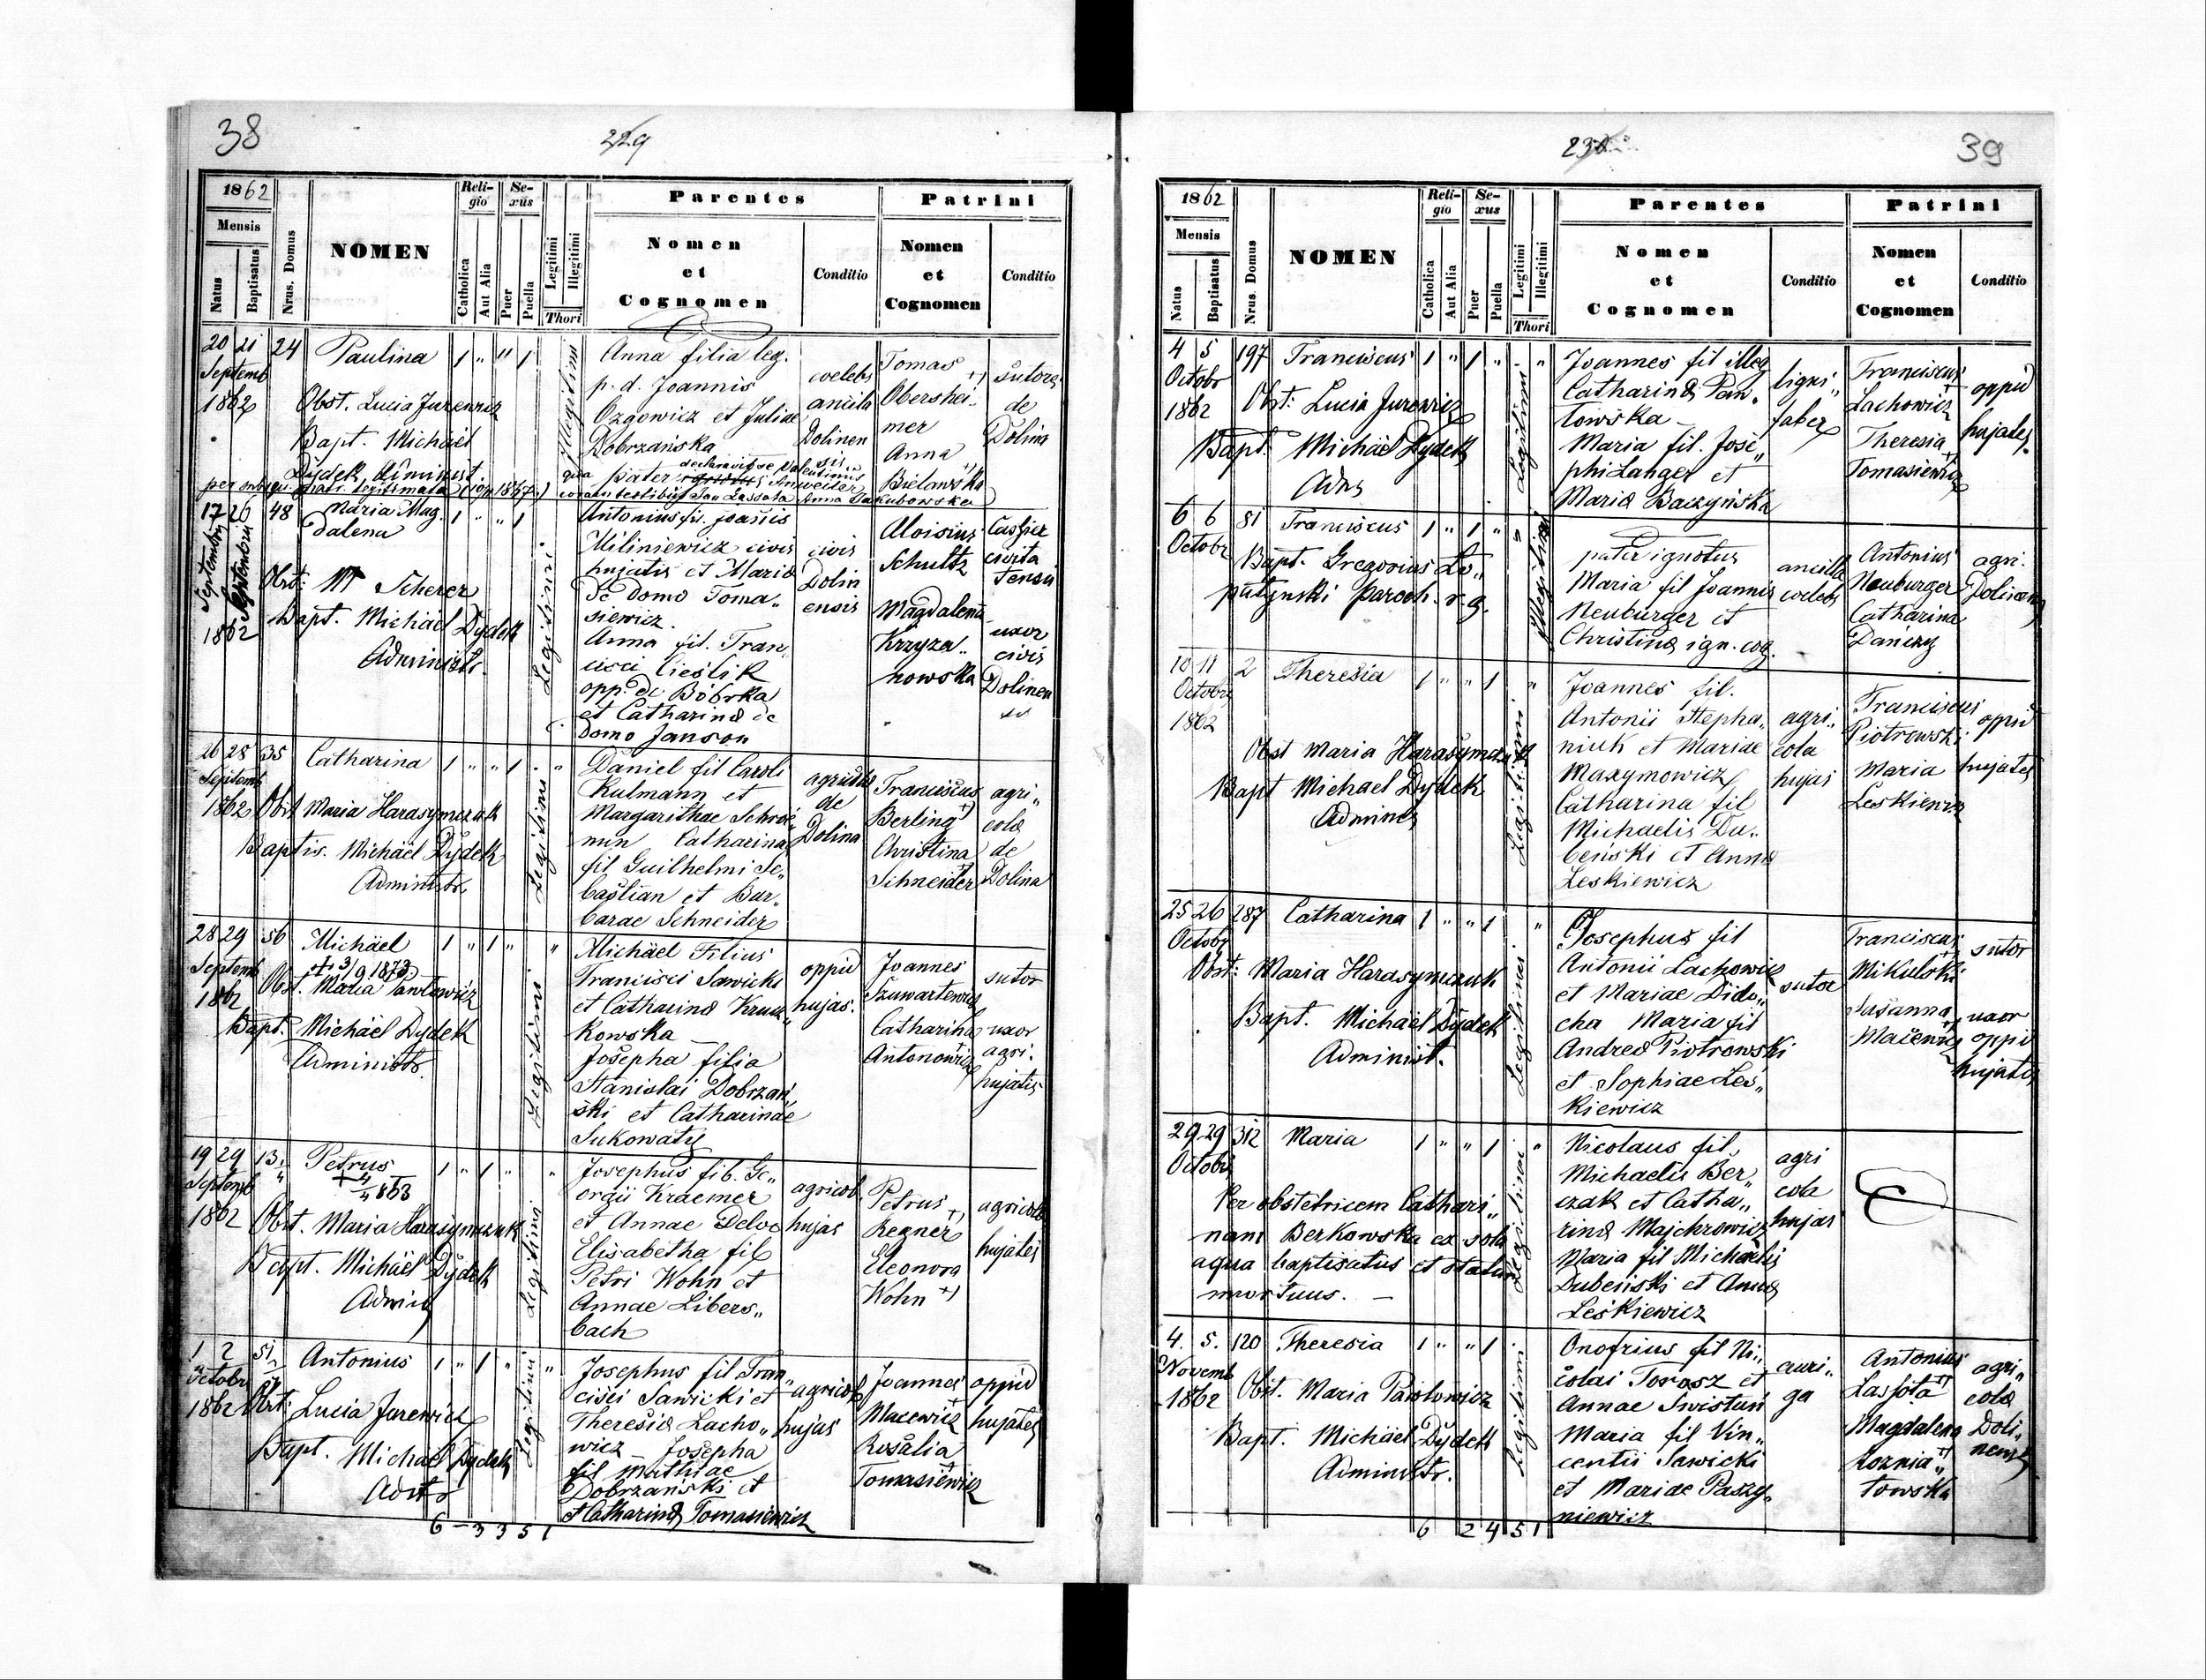 38
229
1862
Mensis
Natus
Baptisatus
Nrus. Domus
NOMEN
Religio
Catholica
Aut Alia
Sexus
Puer
Puella
Legitimi
Illegitimi
Thori
Parentes
Nomen
et
Cognomen
Conditio
Patrini
Nomen
et
Cognomen
Conditio
20 21 24 Paulina 1 " " 1
Septemb
1862
Obst. Lucia Jurewicz
Bapt. Michäel
Dydek Administ
per subsequ. matr. legitimata
Illegitimi
Anna filia leg.
p. d. Joannis
Ozgowicz et Juliae
Dobrzańska
qua pater declaravit se Valentinus
Anweiler
coram testibus Jan Lassota Anna Jakubowska
coelebs
ancila
Dolinen
sis
Tomas +)
Obershei-
mer
Anna
Bielawska
sutores
de
Dolina
17 26 48 Maria Mag. 1 " " 1
dalena
Septembris
Septembris
1862
Obst: M Scherer
Bapt. Michäel Dydek
Administr.
Legitimi
Antonius fil. Joanis
Miliniewicz civis
hujatis et Maria
de domo Toma„
siewicz.
Anna fil. Fran
cisci Cieślik
opp. de Bóbrka
et Catharina de
domo Janson
civis
Dolin
ensis
Aloisius
Schultz
Magdalena
Krzyza„
nowska
Cassier
civita
tensis
uxor
civis
Dolinen
sis
26 28 35 Catharina 1 " " 1 "
Septemb
1862
Obst Maria Harasymczuk
Baptis. Michäel Dydek
Administr.
Legitimi
Daniel fil Caroli
Kulmann et
Margarithae Schroe
min Catharina
fil Guilhelmi Se„
bastian et Bar„
barae Schneider
agricola
de
Dolina
Franciscus
Berling +)
Christina
Schneider
agri„
cola
de
Dolina
28 29 56 Michäel 1 " 1 " "
+ 3/9 1873
Septemb
1862
Obst. Maria Pawłowicz
Bapt. Michäel Dydek
Administr.
Legitimi
Michäel Filius
Francisci Sawicki
et Catharina Krusz„
kowska
Josepha filia
Stanislai Dobrzań
ski et Catharinae
Sukowaty
oppid
hujas.
Joannes
Szuwartewicz
Catharina
Antonowicz
sutor
uxor
agri.
hujatis
19 29 13 Petrus 1 " 1 " "
Septemb
1862
Obst. Maria Harasymczuk
Bapt. Michäel Dydek
Legitimi
Josephus fil. Ge„
orgii Kraemer
et Annae Deloc
Elisabetha fil
Petri Wohn et
Annae Libers„
bach
agricol.
hujas
Petrus +)
Regner
Eleonora
Wohn +)
agricola
hujates
1 2 51 Antonius 1 " 1 " "
Octobr
1862
Obst: Lucia Jurewicz
Bapt. Michael Dydek
Legitimi
Josephus fil Fran„
cisci Sawicki et
Theresia Lacho„
wicz Josepha
fil Mathiae
Dobrzański et
et Catharina Tomasiewicz
agricol
hujas
Joannes
Macewicz
Rosalia
Tomasiewicz
oppid
hujates
6 - 3 3 5 1
39
1862
Mensis
Natus
Baptisatus
Nrus. Domus
NOMEN
Religio
Catholica
Aut Alia
Sexus
Puer
Puella
Legitimi
Illegitimi
Thori
Parentes
Nomen
et
Cognomen
Conditio
Patrini
Nomen
et
Cognomen
Conditio
4 5 197 Franciscus 1 " 1 " "
Octobr
1862
Obst: Lucia Jurowicz
Bapt. Michäel Dydek
Legitimi
Joannes fil illeg
Catharina Paw„
łowska
Maria fil. Jose„
phi Langer et
Maria Baczyńska
ligni„
faber
Franciscus
Lachowicz
Theresia
Tomasiewicz
oppid
hujates.
6 6 81 Franciscus 1 " 1 " "
Octobr
Bapt. Gregorius Ło„
patynski Paroch. r. g.
Illegitimi
pater ignotus
Maria fil Joannis
Neuburger et
Christina ign. cog.
ancilla
coelebs
Antonius
Neuburger
Catharina
Daniczy
agri.
10 11 2 Theresia 1 " " 1 "
Octobr
1862
Obst Maria Harasymczuk
Bapt Michael Dydek
Legitimi
Joannes fil.
Antonii Stepha„
niuk et Mariae
Maxymowicz
Catharina fil
Michaelis Du„
beński et Anna
Leskiewicz
agri„
cola
hujas
Franciscus
Piotrowski
Maria
Leskiewicz
oppid
hujates
25 26 287 Catharina 1 " " 1 "
Octobr
Obst: Maria Harasymczuk
Bapt. Michäel Dydek
Administ.
Legitimi
Josephus fil
Antonii Lachowicz
et Mariae Dido„
cha Maria fil
Andrea Piotrowski
et Sophiae Les„
kiewicz
sutor
Franciscus
Mikulski
Susanna
Macewicz
sutor
uxor
oppid
hujatis
29 29 312 Maria 1 " " 1 "
Octobr
Per obstetricem Cathari„
nam Berkowska ex sola
aqua baptisatus et statim
mortuus. —
Legitimi
Nicolaus fil.
Michaelis Ber„
czak et Catha„
rina Majchrowicz
Maria fil Michaelis
Dubeński et Anna
Leśkiewicz
agri
cola
hujas
4. 5. 120 Theresia 1 " " 1
Novemb
1862
Obst. Maria Pawłowicz
Bapt. Michäel Dydek
Administr.
Legitimi
Onofrius fil Ni„
colai Torosz et
Annae Swistun
Maria fil Vin„
centii Sawicki
et Mariae Paszy„
niewicz
auri„
ga
Antonius
Lassota
Magdalena
Roznia„
towska
agri„
cola
Doli„
nensis
6 2 4 5 1